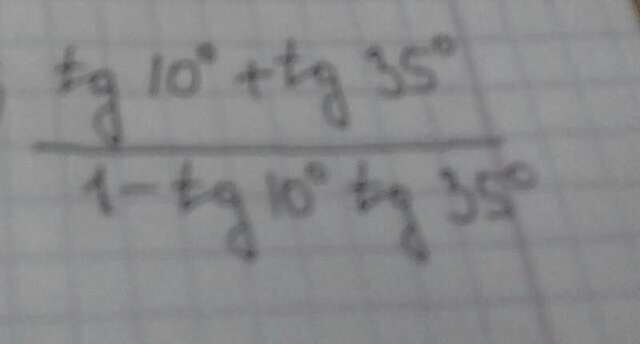 tg 10° + tg 35°
1 - tg 10° tg 35°